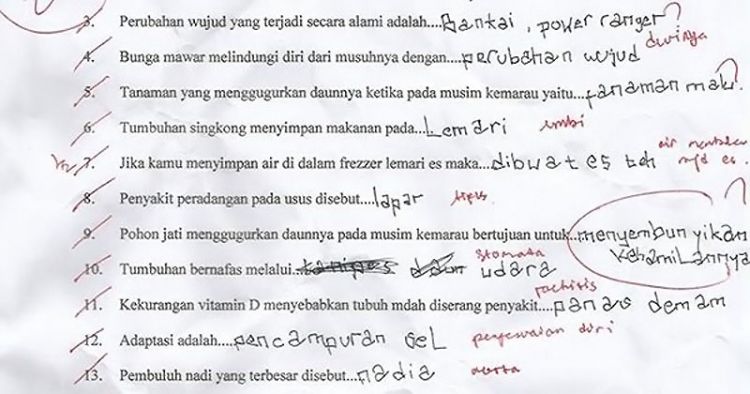 3. Perubahan wujud yang terjadi secara alami adalah....Bantai, power ranger?
4. Bunga mawar melindungi diri dari musuhnya dengan....perubahan wujud durinya
5. Tanaman yang menggugurkan daunnya ketika pada musim kemarau yaitu...tanaman mali.
6. Tumbuhan singkong menyimpan makanan pada...Lemari umbi
7. Jika kamu menyimpan air di dalam frezzer lemari es maka...dibuat es teh air mjd es.
8. Penyakit peradangan pada usus disebut....lapar tipus
9. Pohon jati menggugurkan daunnya pada musim kemarau bertujuan untuk..menyembunyikan kehamilannya ?
10. Tumbuhan bernafas melalui... daun udara stomata
11. Kekurangan vitamin D menyebabkan tubuh mdah diserang penyakit....panas demam rachitis
12. Adaptasi adalah....pencampuran sel penyesuaian diri
13. Pembuluh nadi yang terbesar disebut...nadia aorta